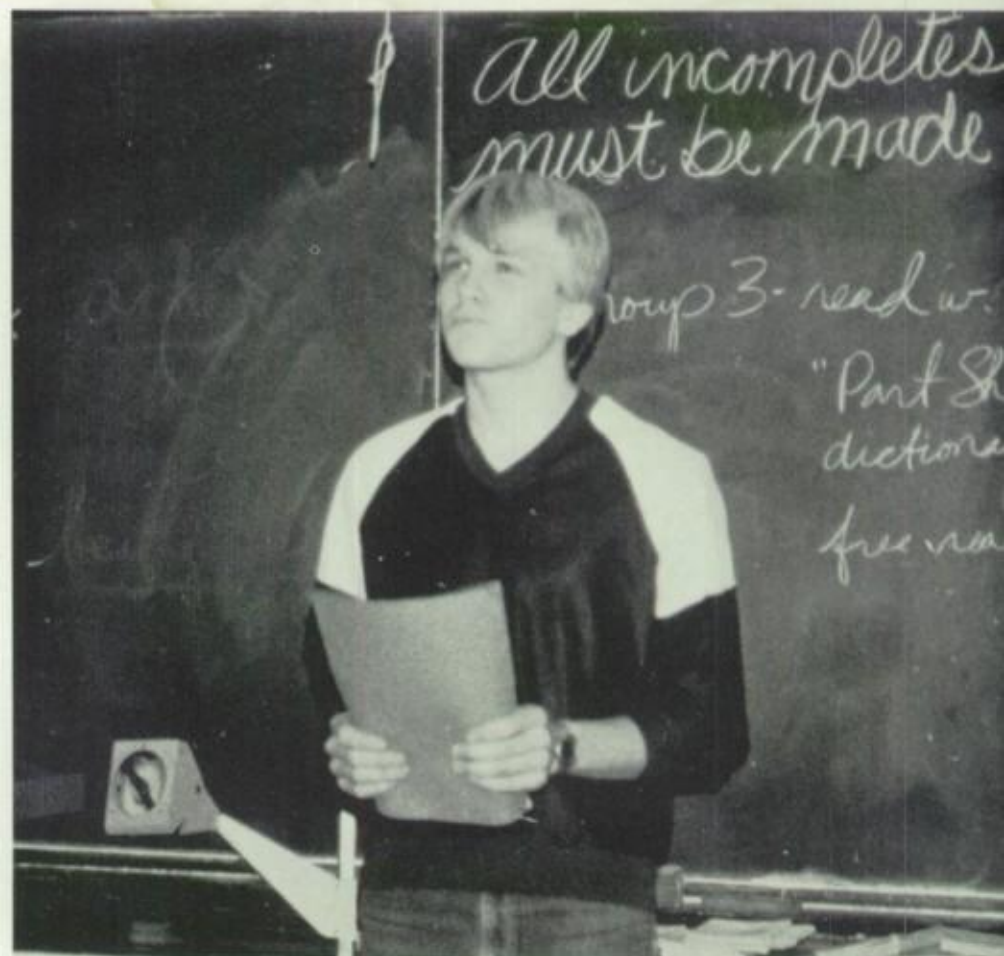 All incompletes
must be made
roup 3 - read w.
"Part Sh
dictiona
free rea